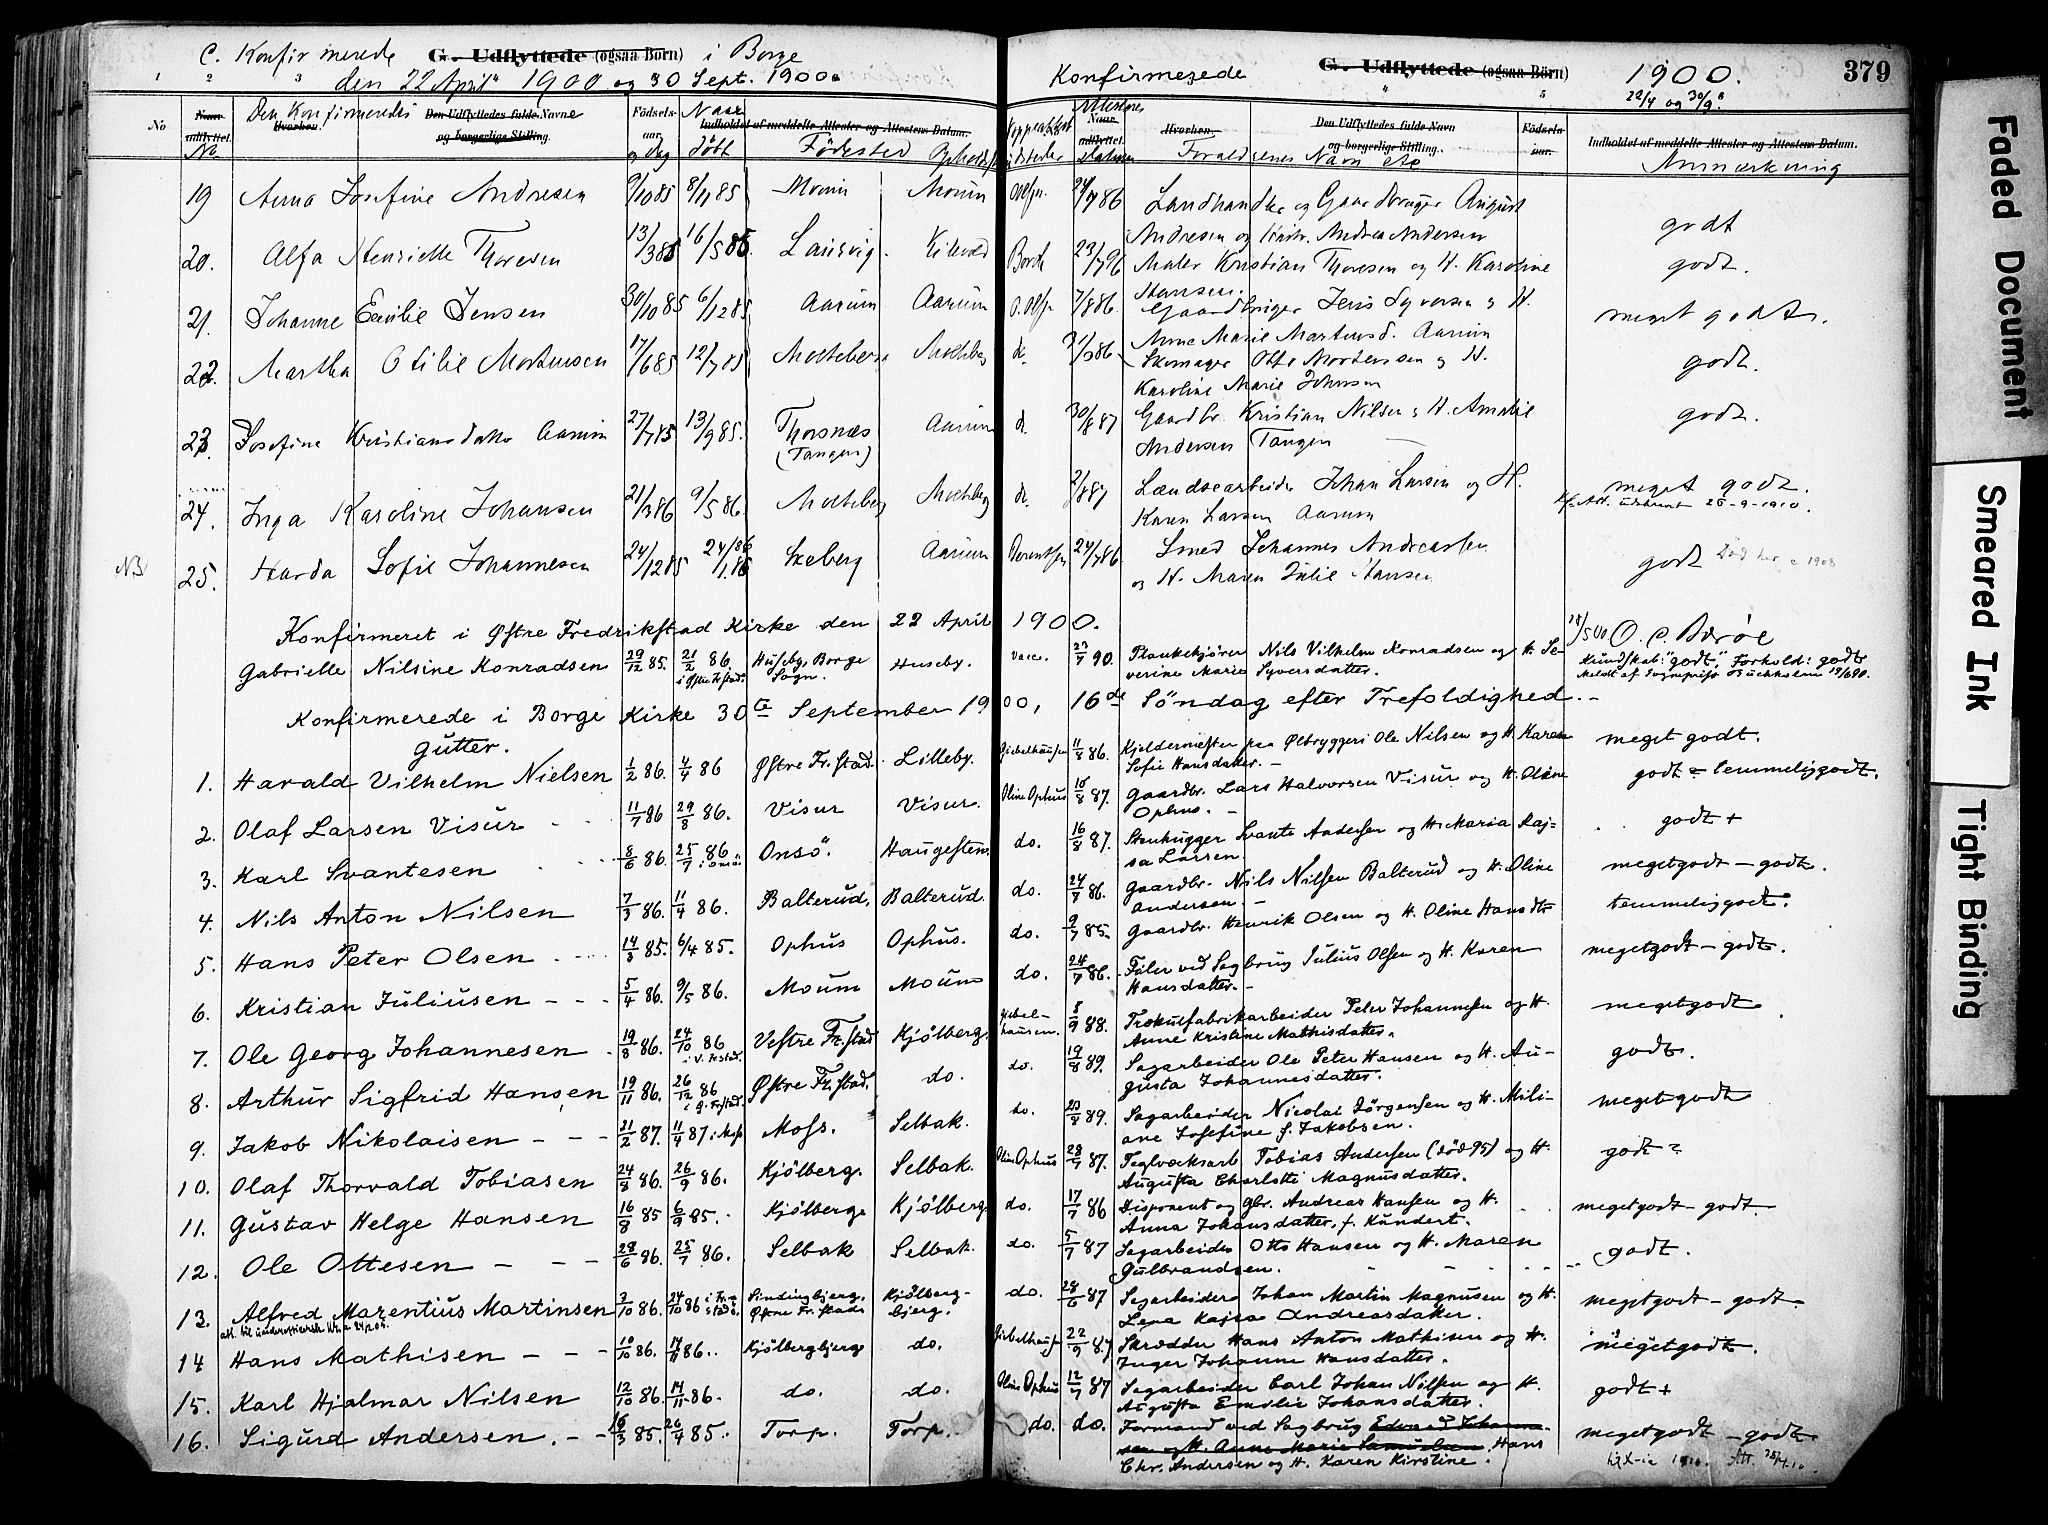 C. Konfirmerede G. Udflyttede (ogsaa Børn) i Borge
den 22 April 1900 og 30 Sept. 1900
Konfirmerede G. Udflyttede (ogsaa Börn) 1900. 379
22/4 og 30/9
No Naar udflyttet No Den Konfirmeredes Hvorhen Den Udflyttedes fulde Navn og borgerlige Stilling. Födselsaar og Dag Naar døbt Indholdet af meddelte Attester og Attestens Datum. Födested
Naar udflyttet Hvorhen. Den Udflyttedes fulde Navn og borgerlige Stilling. Forældrenes Navn etc Födselsaar. Indholdet af meddelte Attester og Attestens Datum. Anmærkning
19 Anna Josefine Andresen 9/10 85 8/11 85 Moum Moum 24/7 86 Landhandler og Gaardbruger August godt
Andresen og Andrea Andersen
20. Alfa Henriette Thoresen 13/3 85 16/5 85. Kilevold 23/7 96 Maler Kristian Thoresen og H. Karoline godt.
Hansen.
21. Johanne Emilie Jensen 30/10 85 6/12 85 Aarum Aarum 7/8 86. Gaardbruger Jens Syversen og H. meget godt.
Anne Marie Martinsd. Aarum
22. Martha Otilie Mortensen 17/6 85 12/7 85 Molteberg Molteberg do. Skomager Otto Mortenssen og H. godt.
Karoline Marie Johnsen
23. Josefine Kristiansdatter Aarum 27/7 85 13/9 85. Thorsnæs (Tangen) Aarum do. 30/8 87 Gaardbr. Kristian Nilsen og H. Amalie godt.
Andersen Tangen
24. Inga Karoline Johansen 21/3 86 9/5 86. Molteberg Molteberg do. 2/8 87 Landsearbeider Johan Larsen og H. meget godt.
Karen Larsen Aarum Att. 26-9-1910.
NB 25. Harda Sofie Johannesen 24/12 85 24/1 86 Skeberg Aarum 24/7 86 Smed Johannes Andreassen godt Død 1908
og H. Maren Julie Hansen
Konfirmeret i Østre Fredrikstad Kirke den 22 April 1900. 18/5 00 O. C. Barøe
Gabrielle Nilsine Konradsen 29/12 85. 21/2 86. i Østre Frstad. Huseby, Borge Sogn. Huseby. vacc. 27/7 90. Plankekjører Nils Vilhelm Konradsen og H. Se- Kundskab: "godt", Forhold: godt
verine Marie Syversdatter. Meldt af Sognepræst Buchholm
Konfirmerede i Borge Kirke 30te September 1900, 16de Søndag efter Trefoldighed. -
Gutter.
1. Harald Vilhelm Nielsen 1/2 86. 4/4 86 Østre Fr.stad. Lilleby. Giebelhausen 11/8 86. Kjeldermester paa Ølbryggeri Ole Nilsen og H. Karen meget godt.
Sofie Hansdatter. -
2. Olaf Larsen Visur - - 11/7 86 29/8 86. Visur Visur. Oline Ophus 18/8 87. Gaardbr. Lars Halvorsen Visur og H. Oline godt - temmelig godt.
Ophus. -
3. Karl Svantesen 8/6 86. 25/7 86 i Onsö. Onsö. Haugesten. do. 16/8 87. Stenhugger Svante Andersen og H. Maria Kaj- godt +
sa Larsen
4. Nils Anton Nilsen 7/3 86. 11/4 86. Balterud. Balterud. do. 24/7 86. Gaardbr. Nils Nilsen Balterud og H. Oline megetgodt - godt.
Andersen. -
5. Hans Peter Olsen 14/3 85. 6/4 85. Ophus Ophus. do. 9/7 85. Gaardbr. Henrik Olsen og H. Oline Hansdtr. temmelig godt.
6. Kristian Juliusen 5/4 86. 9/5 86. Moum Moum do. 24/7 86. Filer ved Sagbrug Julius Olsen og H. Karen megetgodt - godt.
Hansdatter. -
7. Ole Georg Johannesen 19/8 86. 24/10 86 i V. Frstad. Vestre Fr.stad Kjölberg. Giebelhausen. 8/9 88. Træskulfabrikarbeider Peter Johannesen og H. megetgodt
Anne Kristine Mathisdatter.
8. Arthur Sigfrid Hansen 19/11 86. 26/12 86 i Ø. Frstad. Østre Fr.stad. do. do. 19/8 89. Sagarbeider Ole Peter Hansen og H. Au- godt.
gusta Johannesdatter.
9. Jakob Nikolaisen 21/2 87. 11/4 87 i Moss Moss. Selbak. do. 20/8 89. Sagarbeider Nicolai Jörgensen og H. Mili- megetgodt
ane Josefine f. Jakobsen.
10. Olaf Thorvald Tobiasen 24/8 86. 26/9 86. Kjölberg. Selbak. Oline Ophus 28/7 87. Teglværksarb Tobias Andersen (død 95) og H. godt
Augusta Charlotte Magnusdatter.
11. Gustav Helge Hansen 16/8 85 6/9 85. Kjölberg Kjølberg. do. 17/7 86 Disponent og Gbr. Andreas Hansen og H. megetgodt - godt.
Anna Johansdatter, f. Kundert.
12. Ole Ottesen 28/6 86. 25/7 86. Selbak Selbak. do. 5/7 87 Sagarbeider Otto Hansen og H. Maren godt.
Gulbrandsen.
13. Alfred Marentius Martinsen 3/10 86. 24/10 86 i Fr.stad. Sindingbjerg. Østre Fr.stad. Kjölbergbjerg. do. 28/6 87 Sagarbeider Johan Martin Magnusen og H. megetgodt - godt.
Lena Kajsa Andreasdatter.
14 Hans Mathisen 10/10 86. 14/11 86. Kjölbergbjerg do. Giebelhausen 22/9 87 Skrædder Hans Anton Mathisen og H. megetgodt.
Inger Johanne Hansdatter.
15. Karl Hjalmar Nilsen 12/10 86. 14/11 86. do. do. Oline Ophus 12/7 87 Sagarbeider Carl Johan Nilsen og H. godt +
Augusta Emilie Johansdatter.
16. Sigurd Andersen. 16/3 85. 26/4 85. Torp. Torp. do. do. Formand ved Sagbrug Edvard Johannesen og H. Anne Marie Samuelsen Hans megetgodt - godt
Chr. Andersen og H. Karen Kirstine.
Faded Document
Smeared Ink
Tight Binding